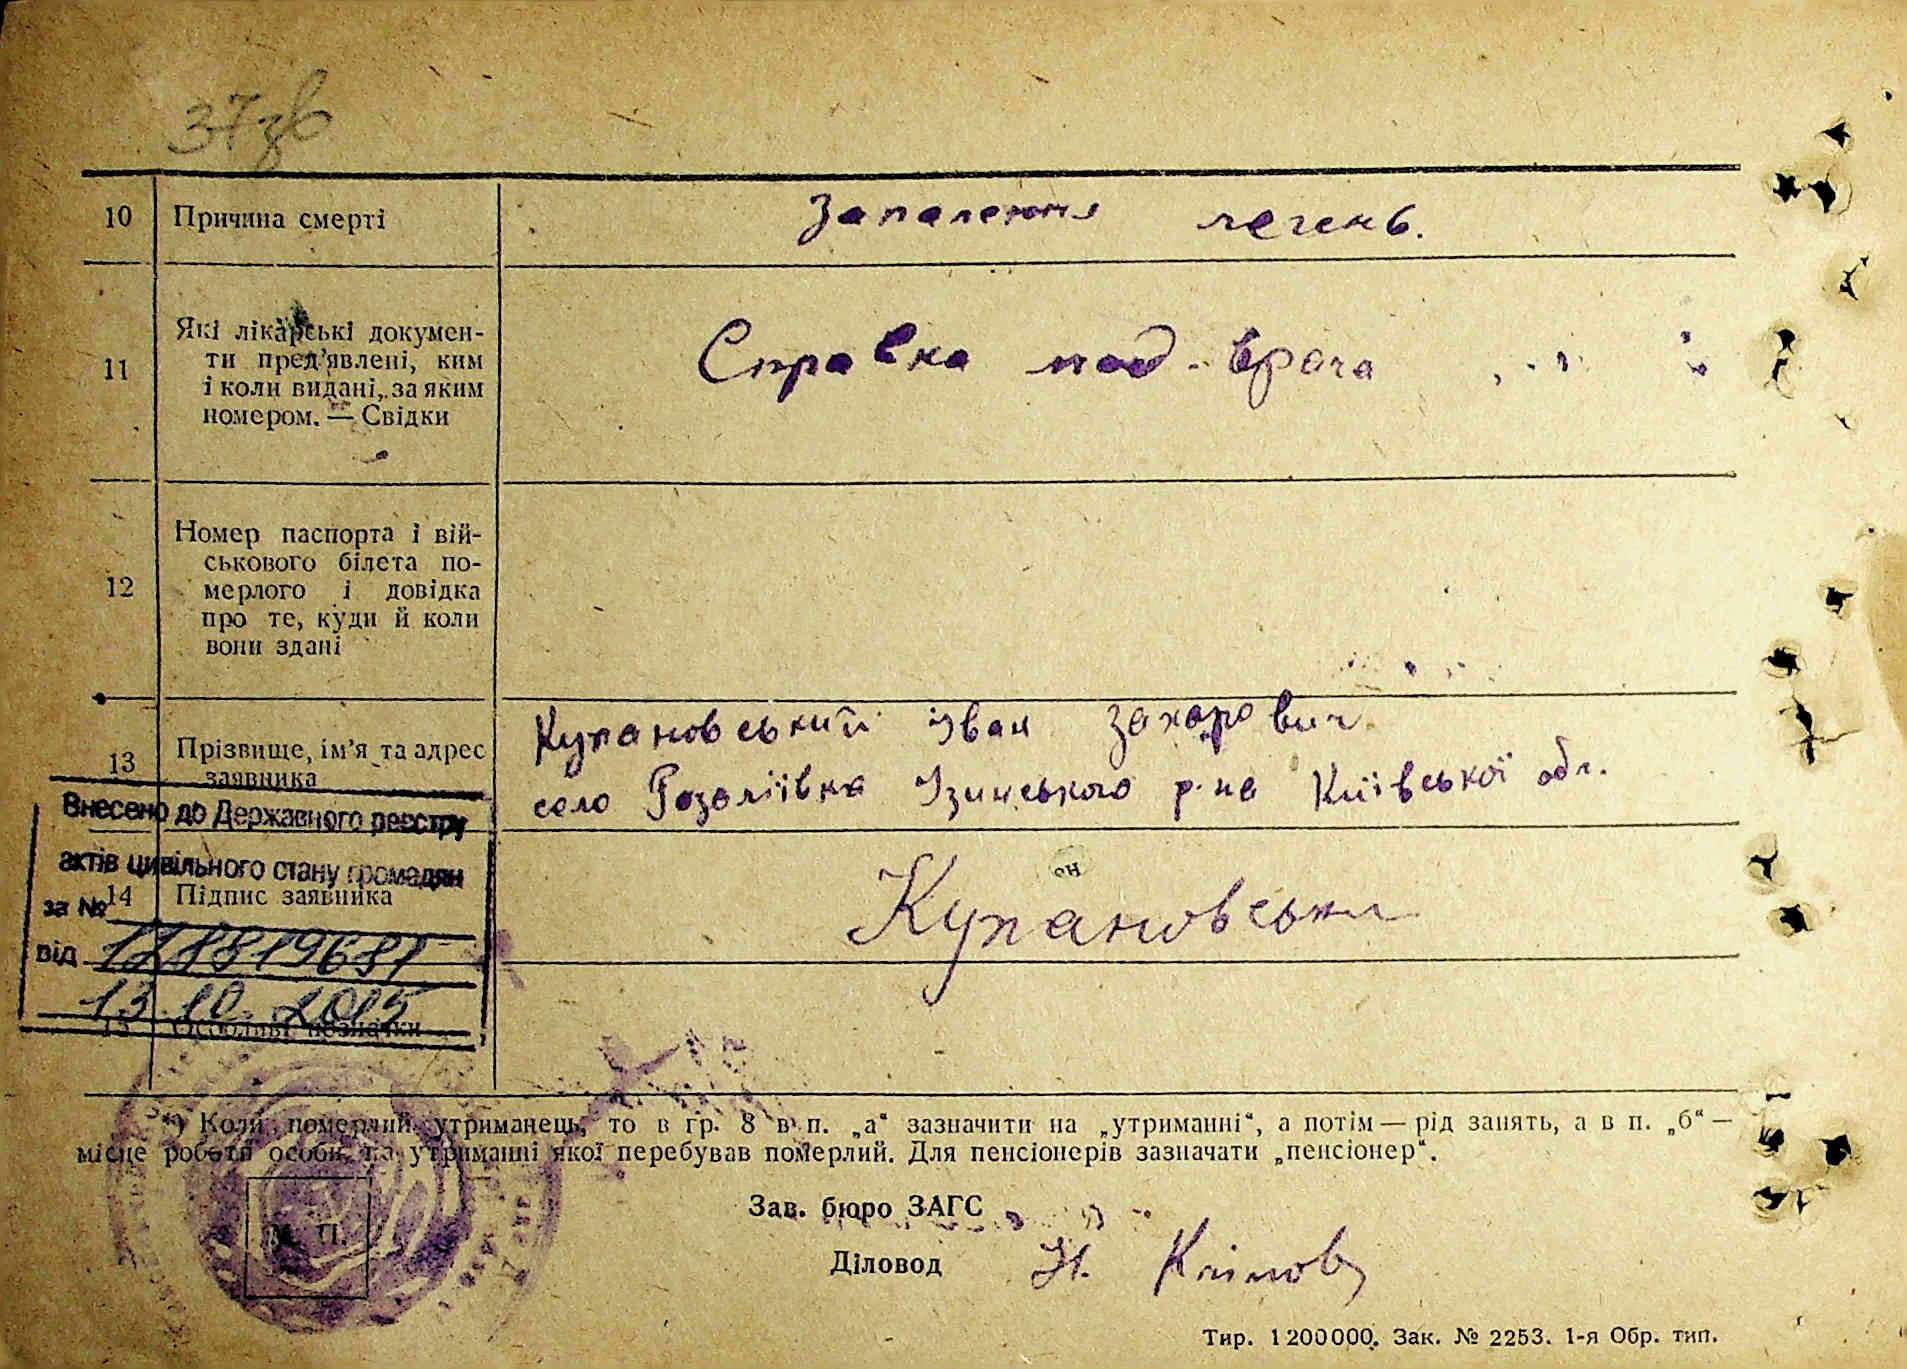 37зв
10 Причина смерті Запалення легень.
11 Які лікарські документи
ти пред'явлені, ким
і коли видані, за яким
номером. — Свідки
Справка под. врача
12 Номер паспорта і вій-
ськового білета по-
мерлого і довідка
про те, куди й коли
вони здані
13 Прізвище, ім'я та адрес
заявника
Купановський Іван Захарович
село Розаліївка Узинського р-на Київської обл.
Внесено до Державного реєстру
актів цивільного стану громадян
за №
від
13.10.2015
14 Підпис заявника
но
15 Особливі позначки
*) Коли померлий утриманець, то в гр. 8 в п. „а“ зазначити на „утриманні“, а потім — рід занять, а в п. „б“ —
місце роботи особи, на утриманні якої перебував померлий. Для пенсіонерів зазначати „пенсіонер“.
М. П.
Зав. бюро ЗАГС
Діловод
Тир. 1200000. Зак. № 2253. 1-я Обр. тип.